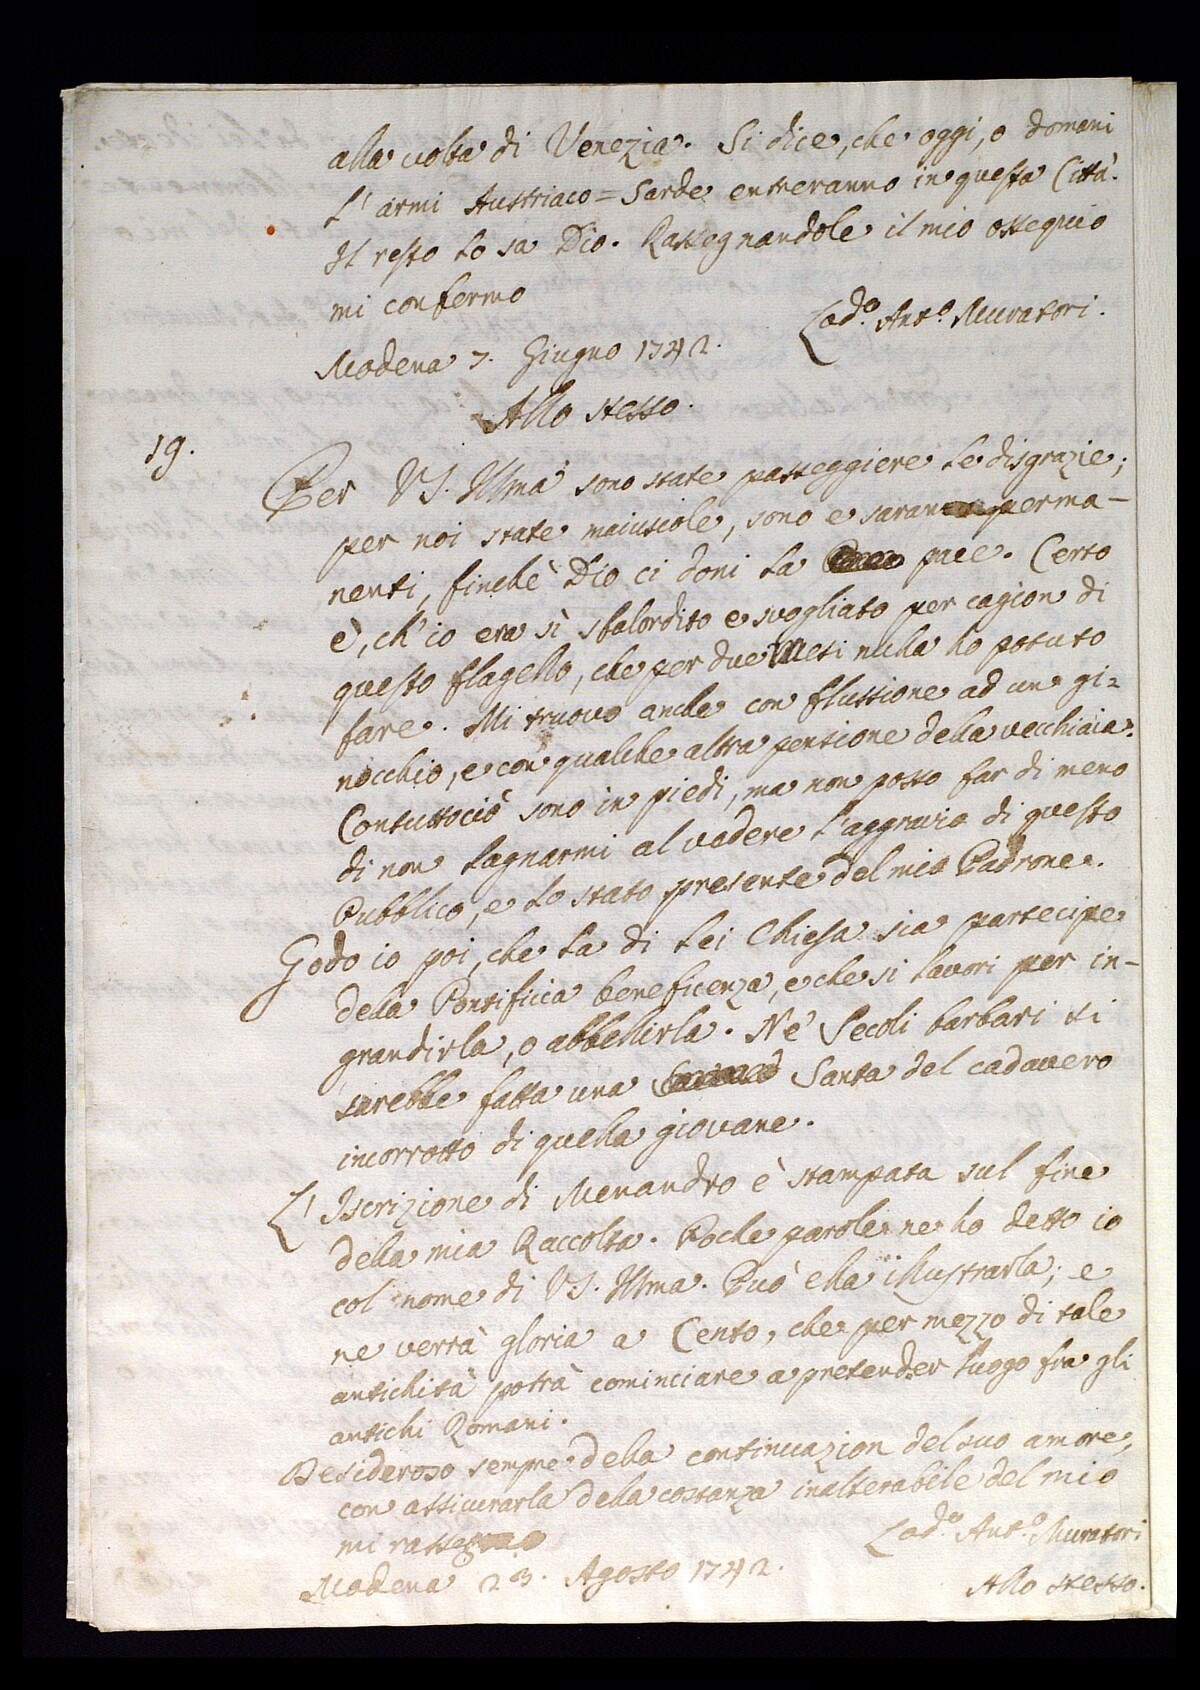 alla volta di Venezia. Si dice, che oggi, o domani
l'armi Austriaco=Sarde entreranno in questa Città.
Il resto lo sa Dio. Rassegnandole il mio ossequio
mi confermo
Lod.o Ant.o Muratori.
Modena 7. Giugno 1742.
Allo stesso.
19.
Per VS. Illma sono state passeggiere le disgrazie;
per noi state maiuscole, sono e saranno perma-
nenti, finchè Dio ci doni la pace. Certo
è, ch'io era sì sbalordito e svogliato per cagion di
questo flagello, che per due Mesi nulla ho potuto
fare. Mi truovo anche con flussione ad un gi=
nocchio, e con qualche altra pensione della vecchiaia.
Contuttociò sono in piedi, ma non posso far di meno
di non lagnarmi al vedere l'aggravio di questo
Pubblico, e lo stato presente del mio Padrone.
Godo io poi, che la di lei Chiesa sia partecipe
della Pontificia beneficenza, e che si lavori per in-
grandirla, o abbellirla. Ne' Secoli barbari si
sarebbe fatta una Santa del cadavero
incorrotto di quella giovane.
L'Iscrizione di Menandro è stampata sul fine
della mia Raccolta. Poche parole ne ho detto io
col nome di VS. Illma. Può ella illustrarla; e
ne verrà gloria a Cento, che per mezzo di tale
antichità potrà cominciare a pretender luogo fra gli
antichi Romani.
Desideroso sempre della continuazion del suo amore,
con assicurarla della costanza inalterabile del mio
mi rassegno
Lod.o Ant.o Muratori
Modena 23. Agosto 1742.
Allo stesso.